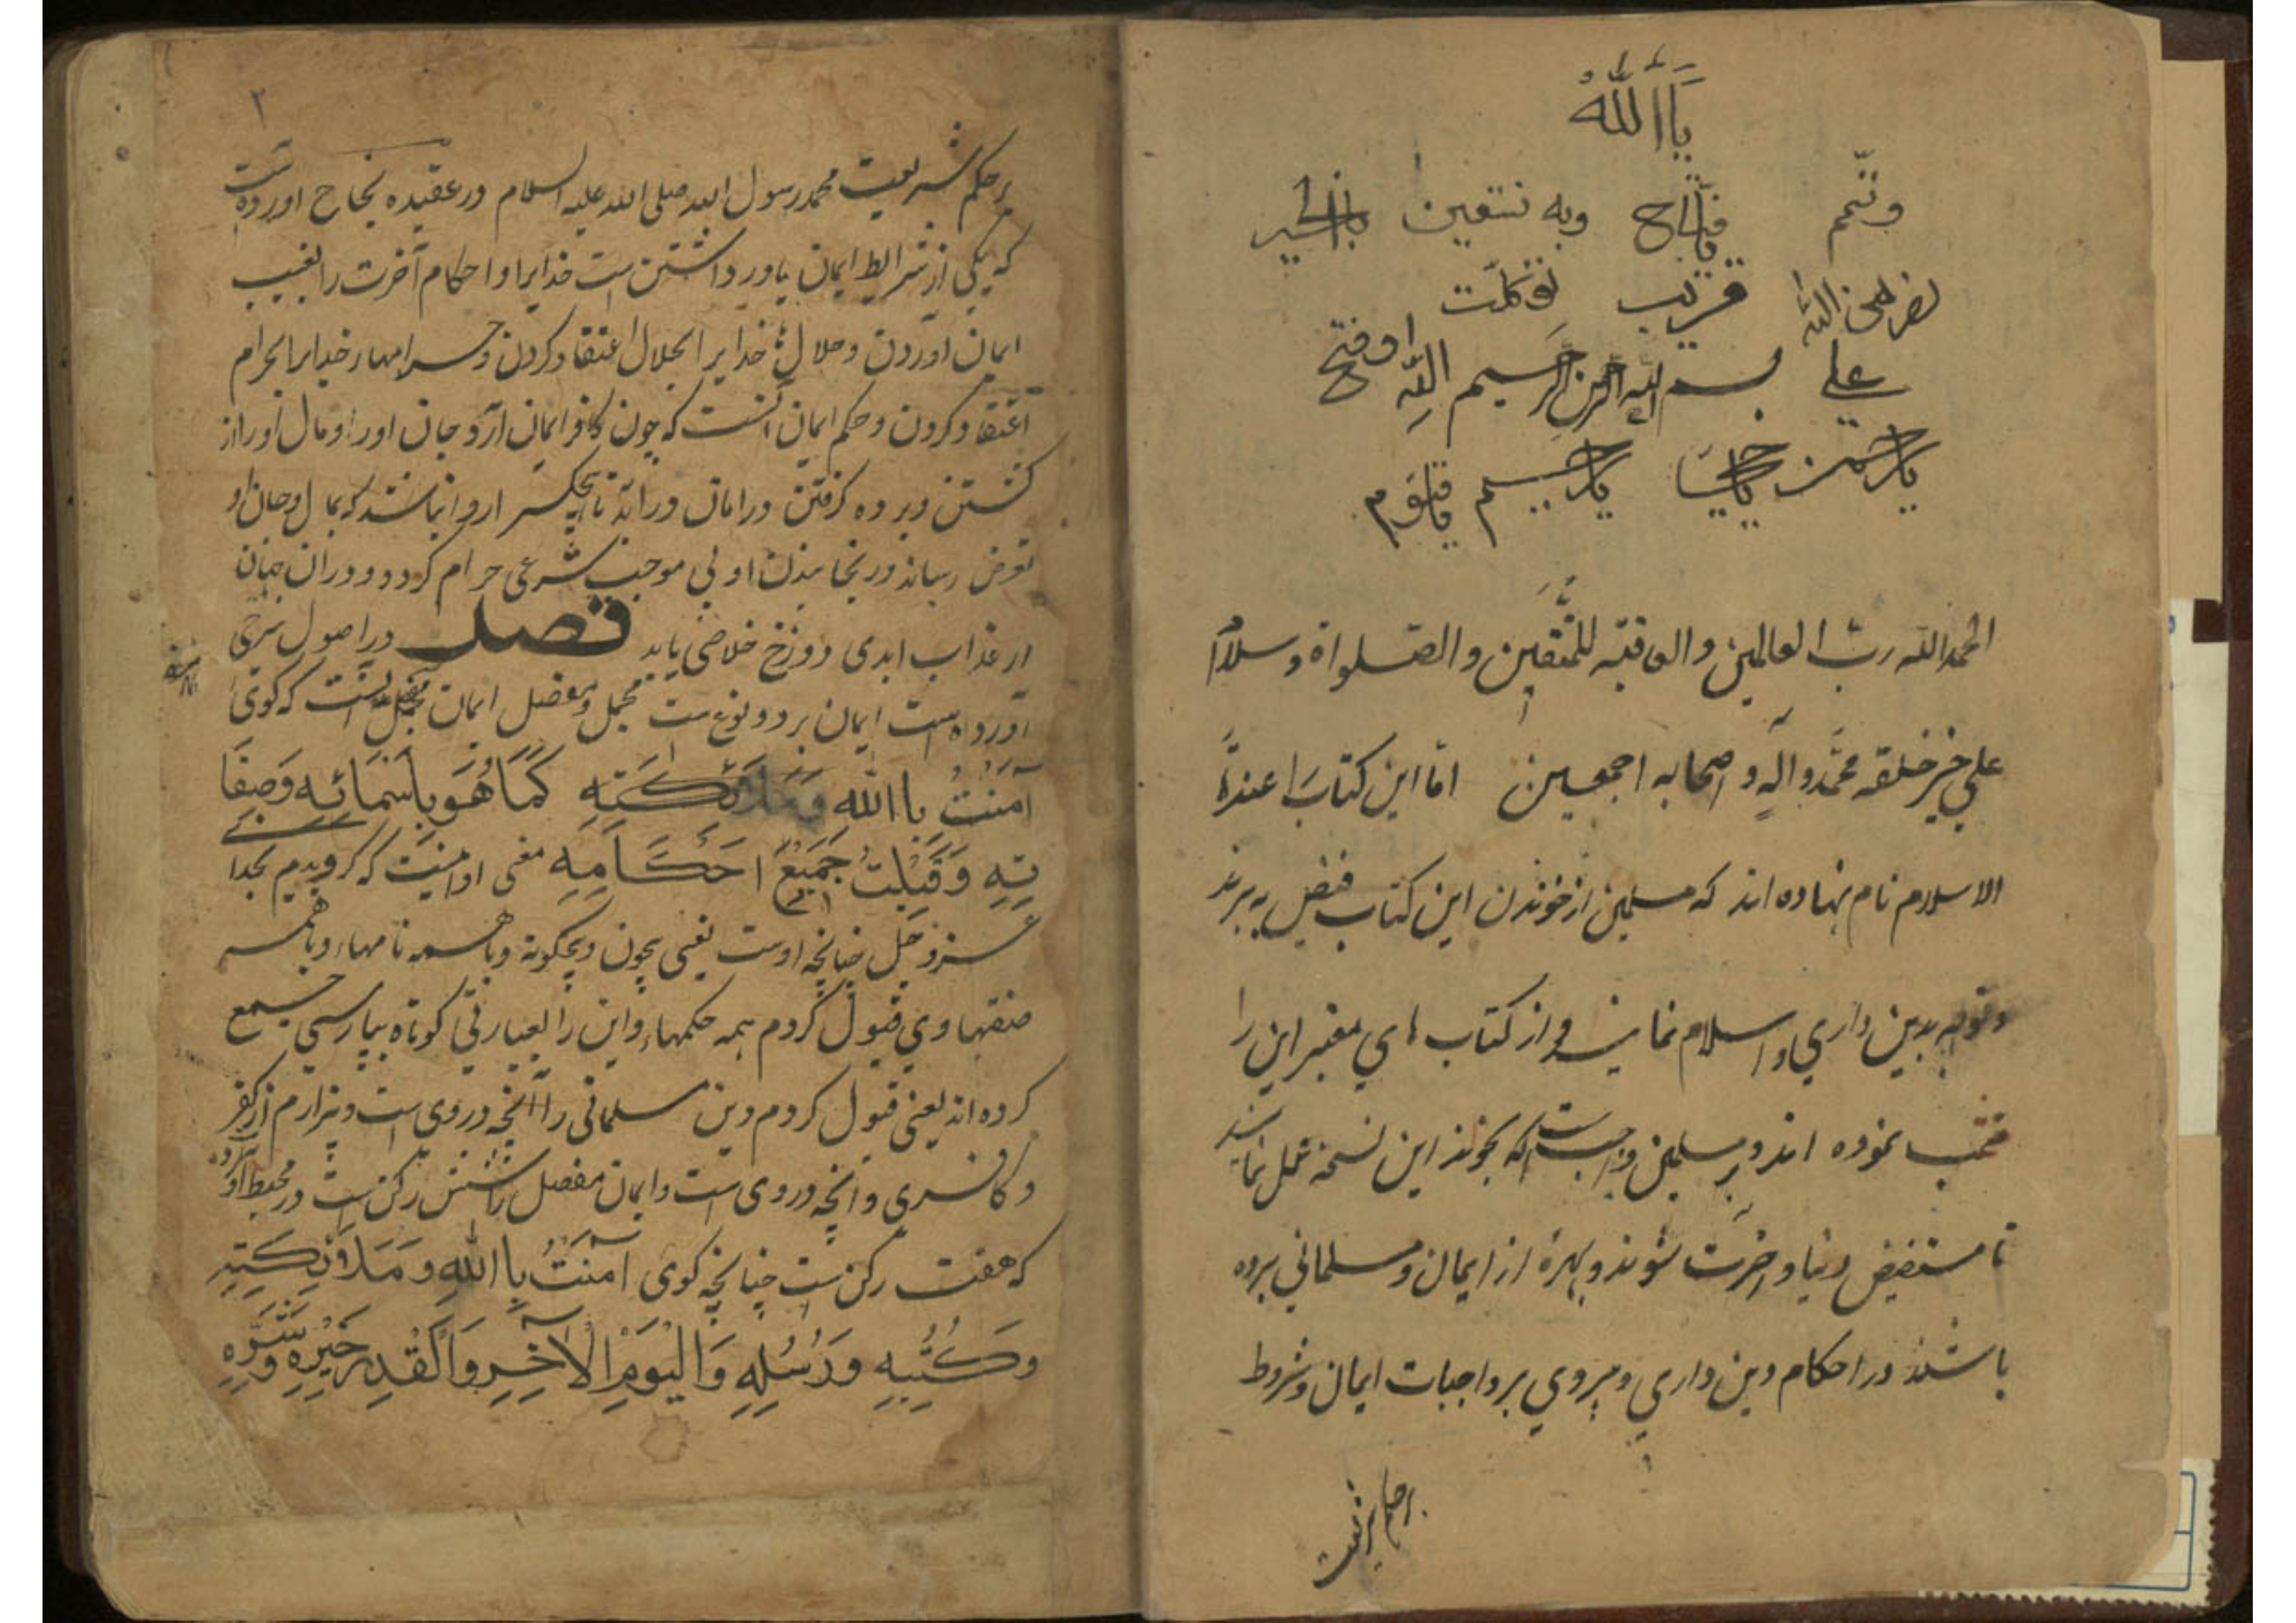 یا اللّٰه
وتمّم یا فتّاح وبه نستعین بالخیر
نصر من اللّٰه قریب توکّلت
علی بسم اللّٰه الرحمن الرحیم اللّٰه وفتح
یا رحمن یا رحیم یا قیّوم
الحمد اللّٰه ربّ العالمین والعاقبة للمتّقین والصّلواة وسلاما
علی خیر خلقه محمّد وآله و اصحابه اجمعین امّا این کتاب را عمدة
الاسلام نام نهاده اند که مسلمین از خوندن این کتاب فیض به برند
وتوجه بدین داري و اسلام نمایند و از کتاب هاي معتبر این را
نموده اند و بر مسلمین واجب است که بخوند این نسخه عمل نمایند
تا مستفیض دنیا و اخرت شوند و بهرهٔ از ایمان و مسلماني برده
باشند در احکام دین داري و پیروي بر واجبات ایمان و شروط
برحکم شریعت
۲
برحکم شریعت محمد رسول الله صلی الله علیه السلام در عقیده نجاح اورده است
که یکی از شرایط ایمان باور داشتن است خدایرا و احکام آخرت را بغیب
ایمان آوردن و حلالهاء خدایرا حلال اعتقاد کردن و حرامهاء خدایرا حرام
اعتقاد کردن و حکم ایمان آنست که چون کافر ایمان آرد جان او را و مال او را از
کشتن و برده کرفتن در امان در آید تا هیچکس را روا نباشد که بمال و جان او
تعرض رساند و رنجانیدن او بی موجب شرعی حرام کردد و در ان جهان
از عذاب ابدی دوزخ خلاصی یابد فصل در اصول
آورده است ایمان بر دو نوع ست مجمل و مفصل ایمان مجمل آنست که کوی
آمَنْتُ بِا اللهِ کَمَا هُوَ بِاَسْمَائِهِ وَصِفَا
تِهِ وَقَبِلْتُ جَمِیْعَ اَحْکَامِهِ معنی او اینست که کرویدم بخدا
عزوجل چنانچه اوست یعنی بیچون و بیچکونه وباهمه نامهاء وباهمه
صفتهاء وي قبول کردم همه حکمهاء واین را بعبارتی کوتاه بپارسی جمع
کرده اند یعنی قبول کردم دین مسلمانی را آنچه در وی است و بیزارم از کفر
و کافری و آنچه در وی است و ایمان مفصل را شش رکن است و در محیط آورده
که هفت رکن ست چنانچه کوی آمَنْتُ بِا اللهِ وَمَلَائِکَتِهِ
وَکُتُبِهِ وَرُسُلِهِ وَالْیَوْمِ الْآخِرِ وَالْقَدْرِ خَیْرِهِ وَشَرِّهِ